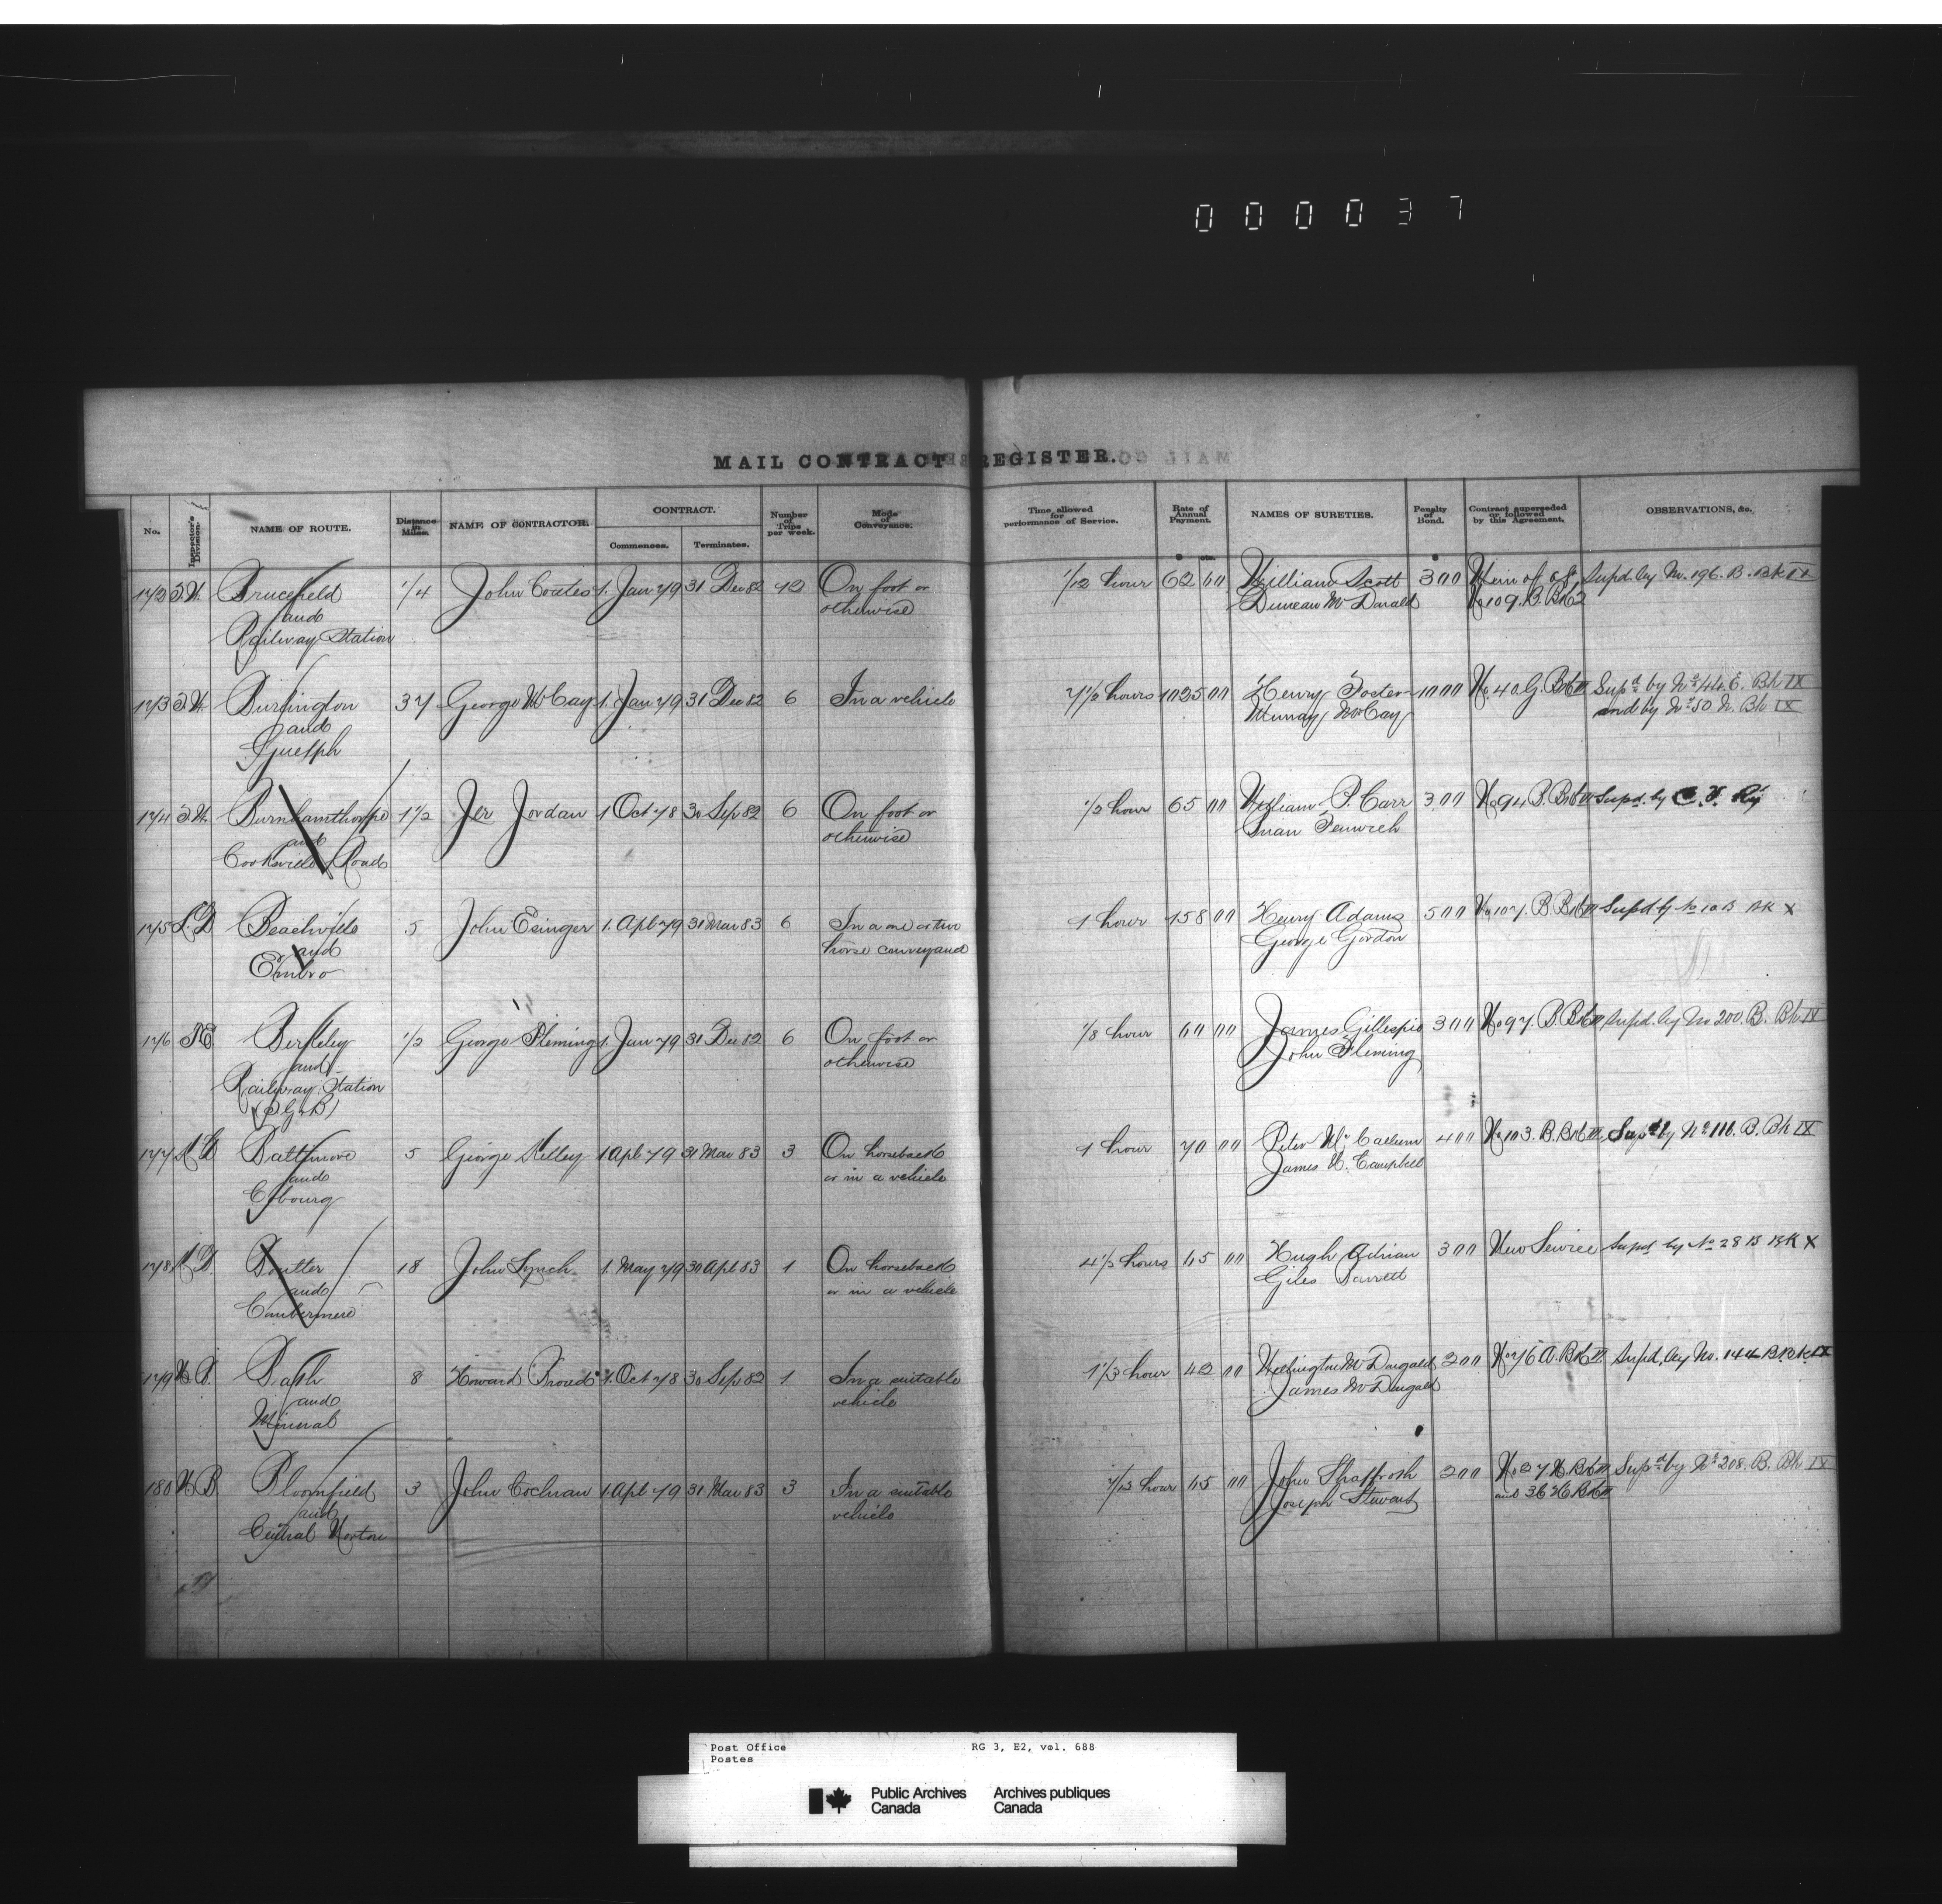 000037
MAIL CONTRACT REGISTER.
No. Inspector's Division. NAME OF ROUTE. Distance in Miles. NAME OF CONTRACTOR. CONTRACT. Commences. Terminates. Number of Trips per week. Mode of Conveyance. Time allowed for performance of Service. Rate of Annual Payment. $ cts. NAMES OF SURETIES. Penalty of Bond. $ Contract superseded or followed by this Agreement. OBSERVATIONS, &c.
Brucefield 1/4 John Coates 1. Jan 79 31 Dec 82 12 On foot or 1/12 hour 62 00 William Scott 300 Supd. by No. 196. B. Bk IX
and otherwise Duncan McDonald No 109. B. Bk 2
Railway Station
173 Burlington 37 George McCay 1. Jan 79 31 Dec 82 6 In a vehicle 7 1/2 hours 1025 00 Henry Foster 1000 No 40. G. Supd by No 44. E. Bk IX
and Murray McCay and by No 50. N. Bk IX
Guelph
174 Burnhamthorpe 1 1/2 Jer Jordan 1 Oct 78 30 Sep 82 6 On foot or 1/2 hour 65 00 William P. Carr 300 No 94 B. Supd. by C. V. Ry
and otherwise Fenwick
Cooksville Road
175 L. D Beachville 5 John Esinger 1. Apl 79 31 Mar 83 6 In a one or two 1 hour 158 00 Henry Adams 500 No 107. B. Supd by No 10 B BK X
and horse conveyance George Gordon
Embro
176 Berkeley 1/2 George Fleming 1. Jan 79 31 Dec 82 6 On foot or 1/8 hour 60 00 James Gillespie 300 No 97 B Supd. by No 200. B. Bk IX
and otherwise John Fleming
Railway Station
177 K D Baltimore 5 George Kelley 1 Apl 79 31 Mar 83 3 On horseback 1 hour 70 00 Peter McCallum 400 No 103. B. Supd by No 111. B. Bk IX
and or in a vehicle James H. Campbell
Cobourg
178 K D Doutler 18 John Lynch 1. May 79 30 Apl 83 1 On horseback 4 1/2 hours 65 00 Hugh Adrian 300 New Service Supd by No 28 B BK X
and or in a vehicle Giles Barrett
Combermere
179 Bath 8 Howard 1. Oct 78 30 Sep 82 1 In a suitable 1 1/3 hour 42 00 Wellington McDougald 200 No 76 A. Supd, by No. 144 B Bk IX
and vehicle James McDougald
Mineral
180 N B Bloomfield 3 John Cochran 1 Apl 79 31 Mar 83 3 In a suitable hour 65 00 John 200 No 27 Supd by No 208. B. Bk IX
and vehicle Joseph Stewart and 36
Central Norton
Post Office RG 3, E2, vol. 688
Postes
Public Archives Archives publiques
Canada Canada